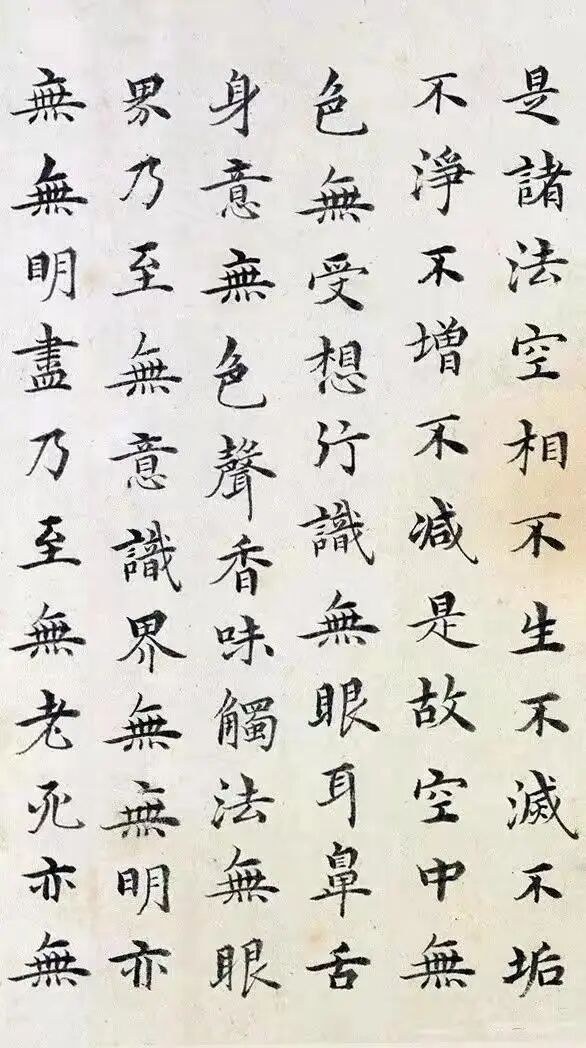 是諸法空相不生不滅不垢
不淨不增不減是故空中無
色無受想行識無眼耳鼻舌
身意無色聲香味觸法無眼
界乃至無意識界無無明亦
無無明盡乃至無老死亦無